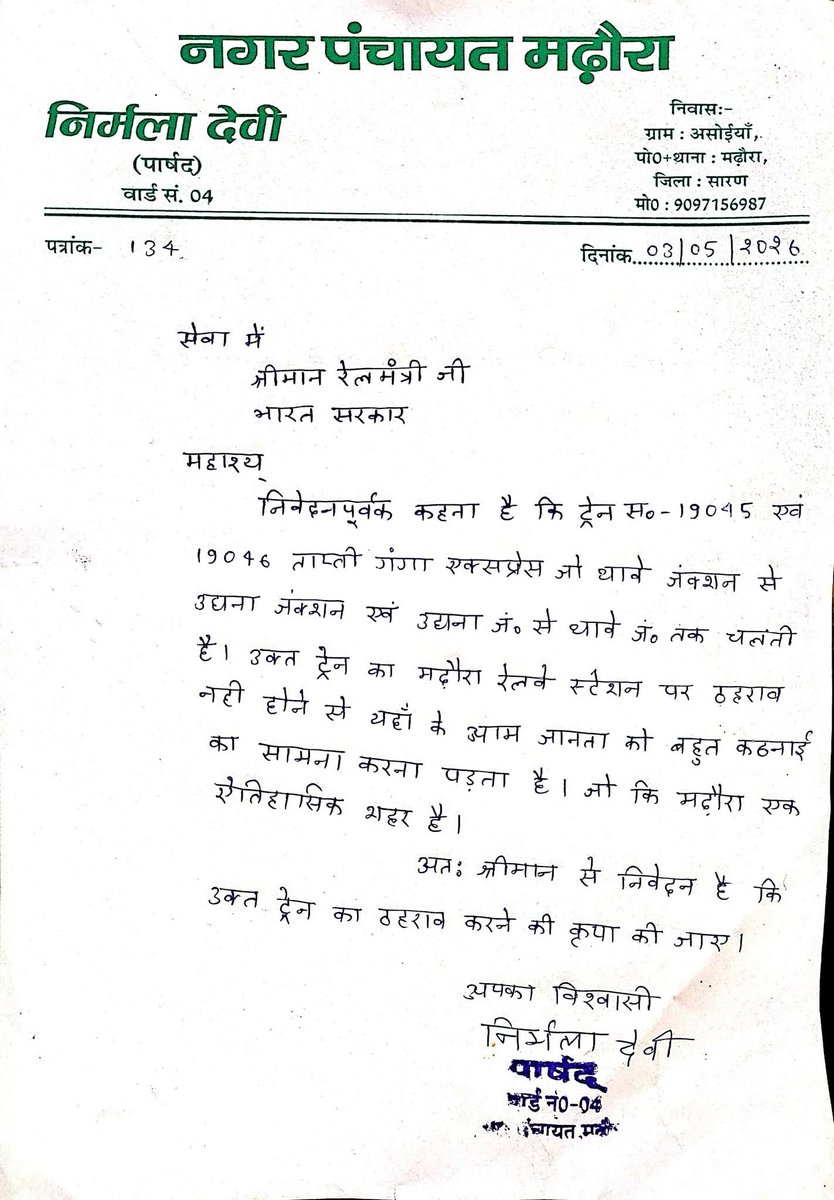 नगर पंचायत मढ़ौरा
निर्मला देवी
(पार्षद)
वार्ड सं. 04
निवासः-
ग्राम : असोईयाँ,
पो0+थाना : मढ़ौरा,
जिला : सारण
मो0 : 9097156987
पत्रांक- 134
दिनांक 03/05/2026
सेवा में
श्रीमान रेलमंत्री जी
भारत सरकार
महाश्य्
निवेदनपूर्वक कहना है कि ट्रेन स०-19045 एवं
19046 ताप्ती गंगा एक्सप्रेस जो थावे जंक्शन से
उधना जंक्शन एवं उधना जं० से थावे जं० तक चलती
है। उक्त ट्रेन का मढ़ौरा रेलवे स्टेशन पर ठहराव
नही होने से यहाँ के आम जानता को बहुत कठनाई
का सामना करना पड़ता है। जो कि मढ़ौरा एक
ऐतिहासिक शहर है।
अतः श्रीमान से निवेदन है कि
उक्त ट्रेन का ठहराव करने की कृपा की जाए।
अपका विश्वासी
निर्मला देवी
पार्षद
वार्ड नं0-04